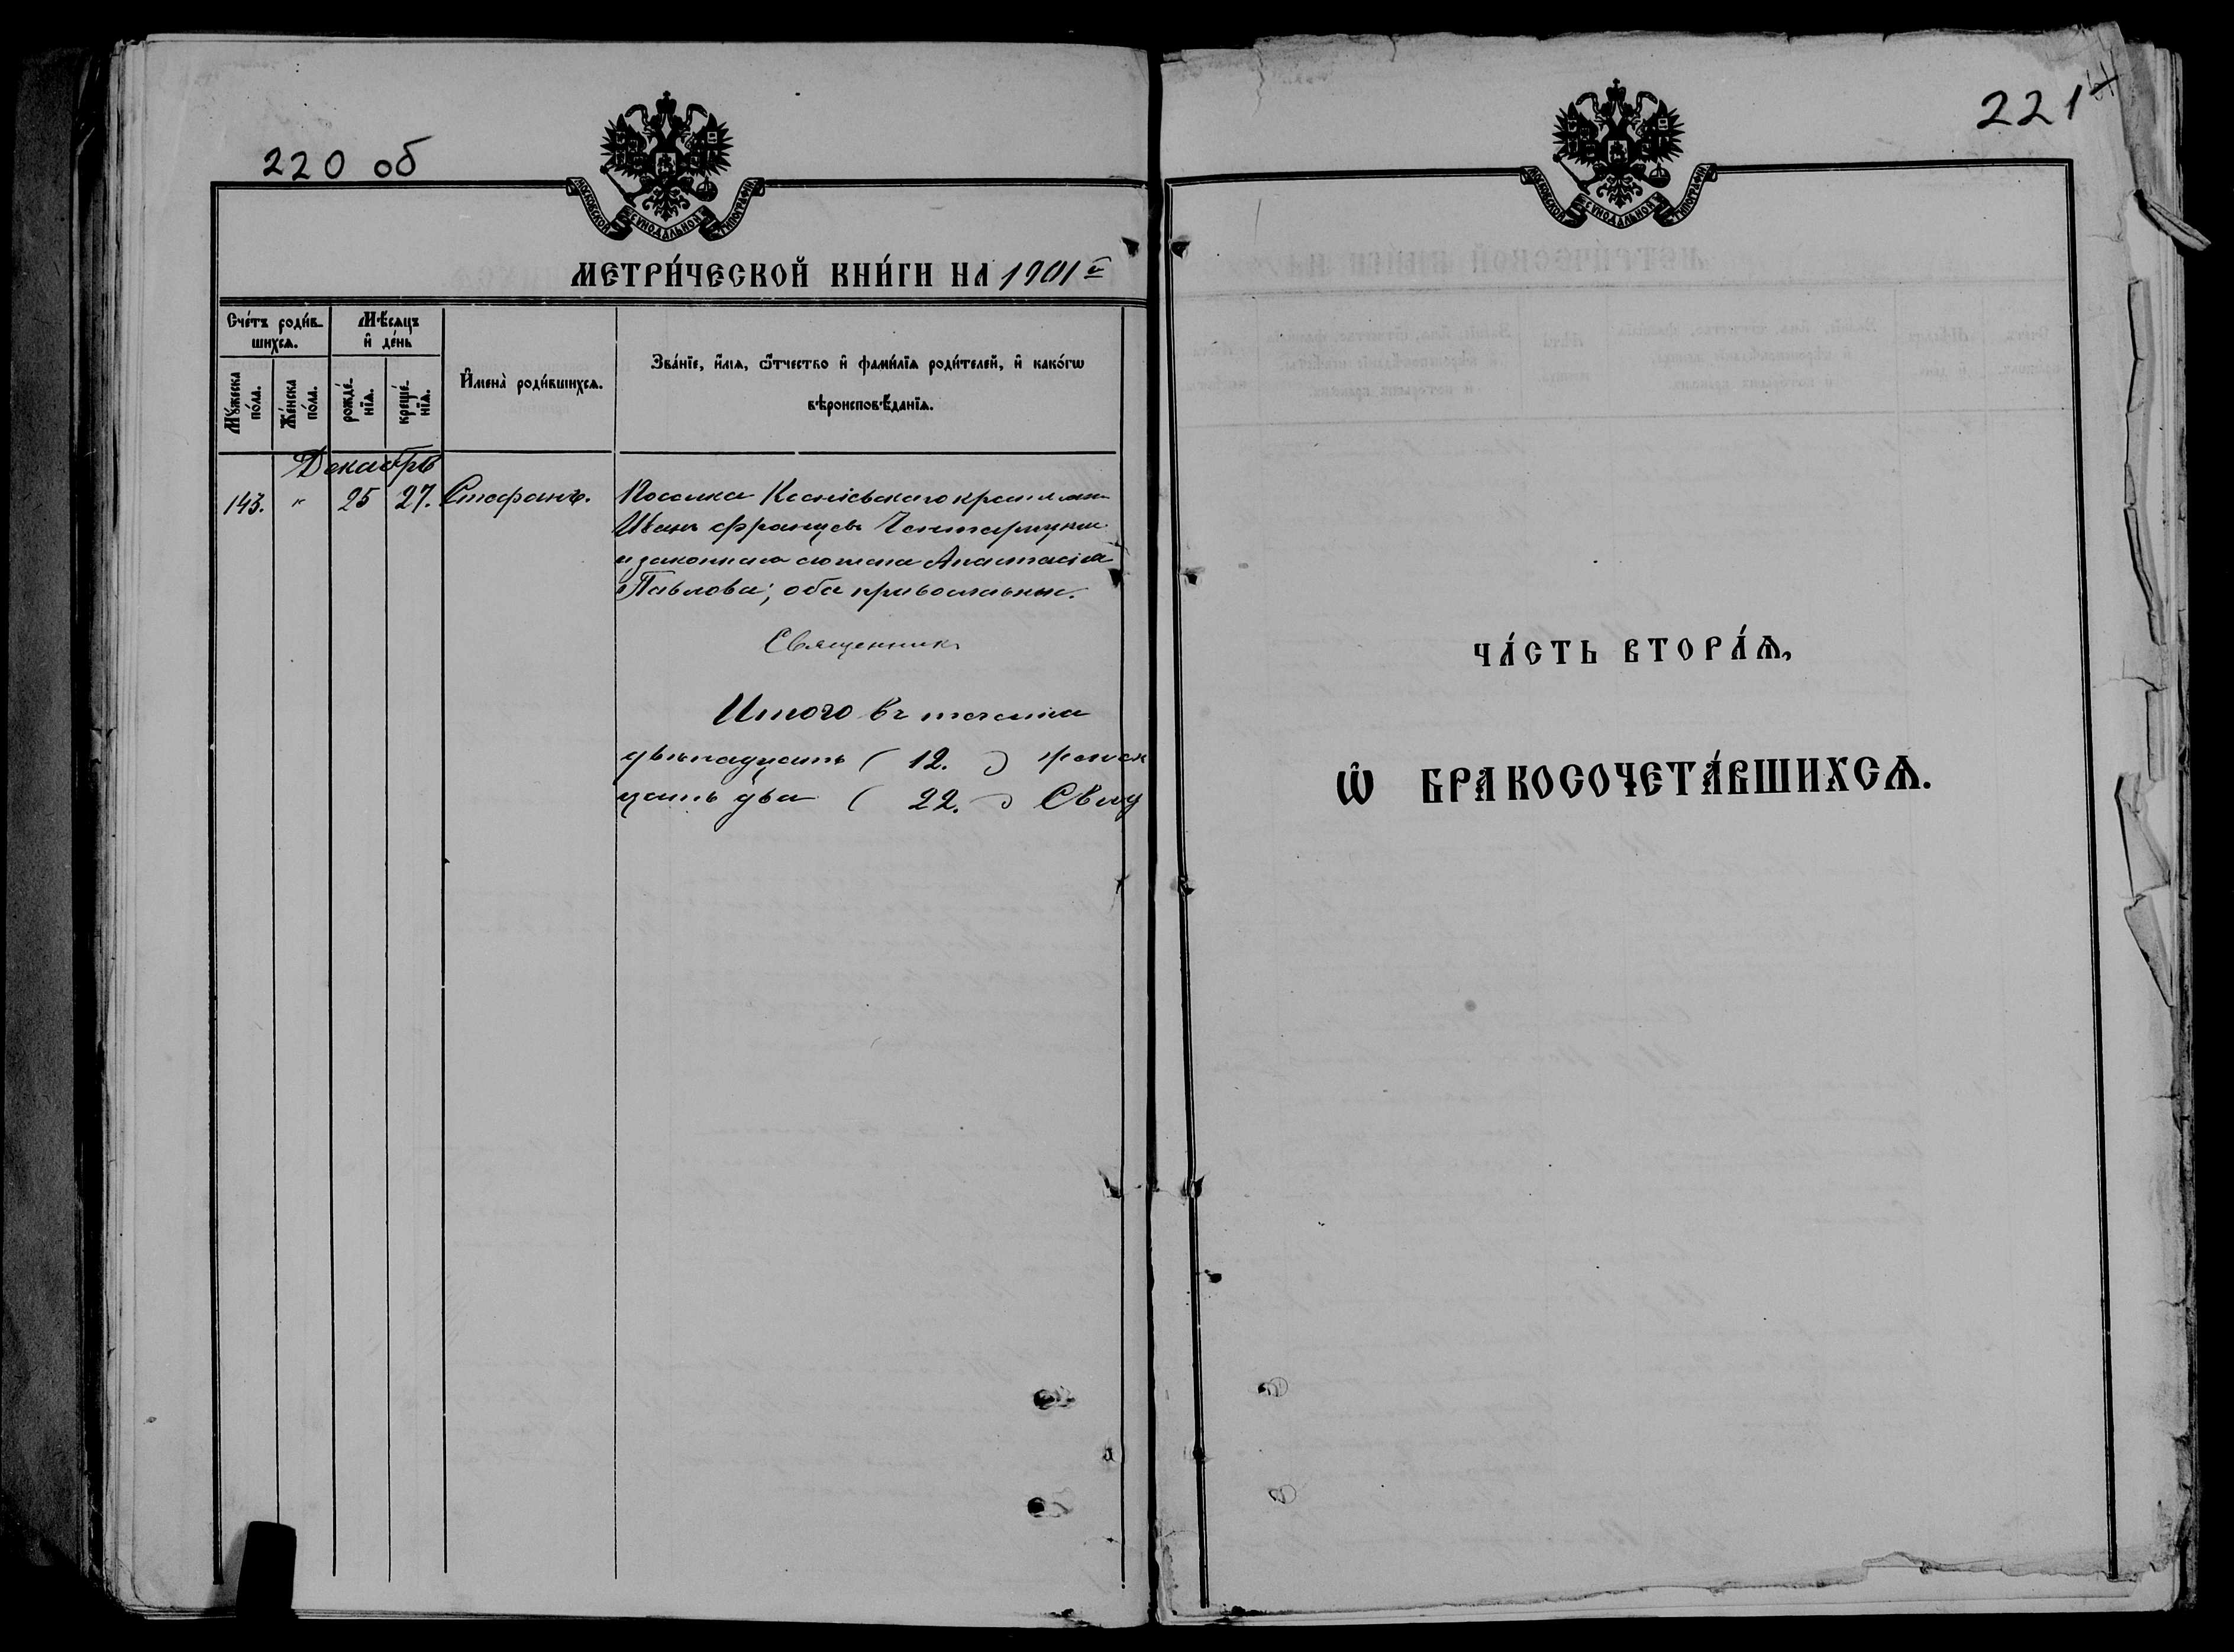 220 об
МОСКОВСКОЙ СѴНОДАЛЬНОЙ ТИПОГРАФІИ
МЕТРИ́ЧЕСКОЙ КНИ́ГИ НА 1901 г.
Сче́тъ роди́в-
шихсѧ.
Мꙋ́жеска
по́ла.
Же́нска
по́ла.
Мѣ́сѧцъ
и҆ де́нь
рожде́-
нїѧ.
креще́-
нїѧ.
И҆мена̀ роди́вшихсѧ.
Зва́нїе, и҆́мѧ, ѻ҆́тчество и҆ фами́лїѧ роди́телей, и҆ како́гѡ
вѣроисповѣ́данїѧ.
Декабрь
143. " 25 27. Стефанъ.
Поселка крестьянинъ
Иванъ Францевъ
и законная его жена Анастасія
Павлова; оба православные.
Священникъ
Итого въ теченіи
двѣнадцать ( 12. ) женск
цать два ( 22. ) Свид
221
МОСКОВСКОЙ СѴНОДАЛЬНОЙ ТИПОГРАФІИ
ЧА́СТЬ ВТОРА́Ѧ,
Ѡ҆ БРАКОСОЧЕТА́ВШИХСѦ.